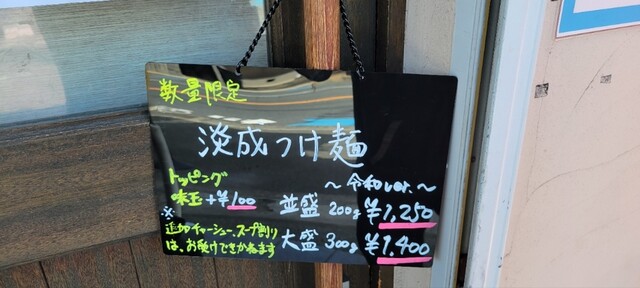 数量限定
淡成つけ麺
～令和ver.～
トッピング
味玉+¥100
並盛 200g ¥1,250
大盛 300g ¥1,400
※
追加チャーシュー、スープ割り
は、お受けできかねます